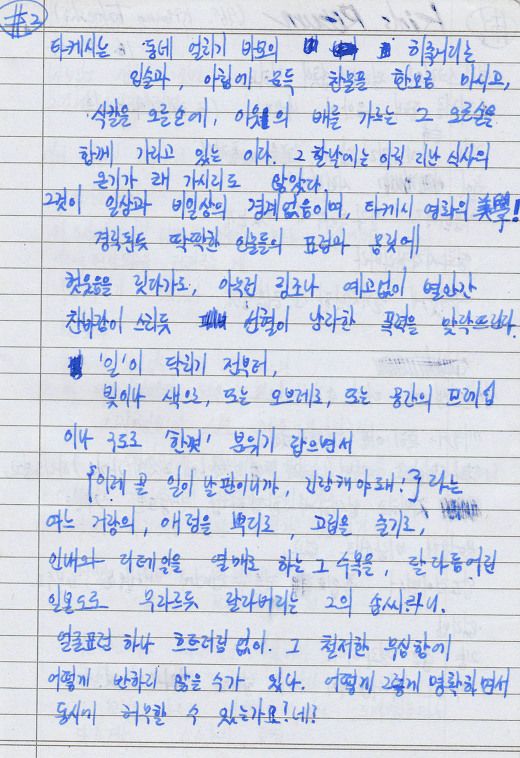 #3
타케시는 동네 얼리기 바보의 히죽거리는
입술과, 아침에 문득 찬물을 한모금 마시고,
식칼을 오른손에, 이웃의 배를 가르는 그 오른손을
함께 가지고 있는 이다. 그 칼날에는 아직 지난 식사의
온기가 채 가시지도 않았다.
그것이 일상과 비일상의 경계없음이며, 타케시 영화의 美學!
경직된듯 딱딱한 인물들의 표정과 몸짓에
헛웃음을 짓다가도, 아무런 징조나 예고없이 별안간
찬바람이 스치듯 선혈이 낭자한 폭력을 맞닥뜨린다.
'일'이 닥치기 전부터,
빛이나 색으로, 또는 오브제로, 또는 공간의 프레임
이나 구도로 '한껏' 분위기 잡으면서
{이제 곧 일이 날 판이니까, 긴장해야돼!} 라는
여느 거장의, 애정을 뿌리로, 고집을 줄기로,
인내와 디테일을 열매로 하는 그 수목을, 닳아등어린
일본도로 무 자르듯 잘라버리는 그의 솜씨하나.
얼굴표정 하나 흐트러짐 없이. 그 철저한 무심함에
어떻게 반하지 않을 수가 있나. 어떻게 그렇게 명확하면서
동시에 허무할 수 있는가요! 네!